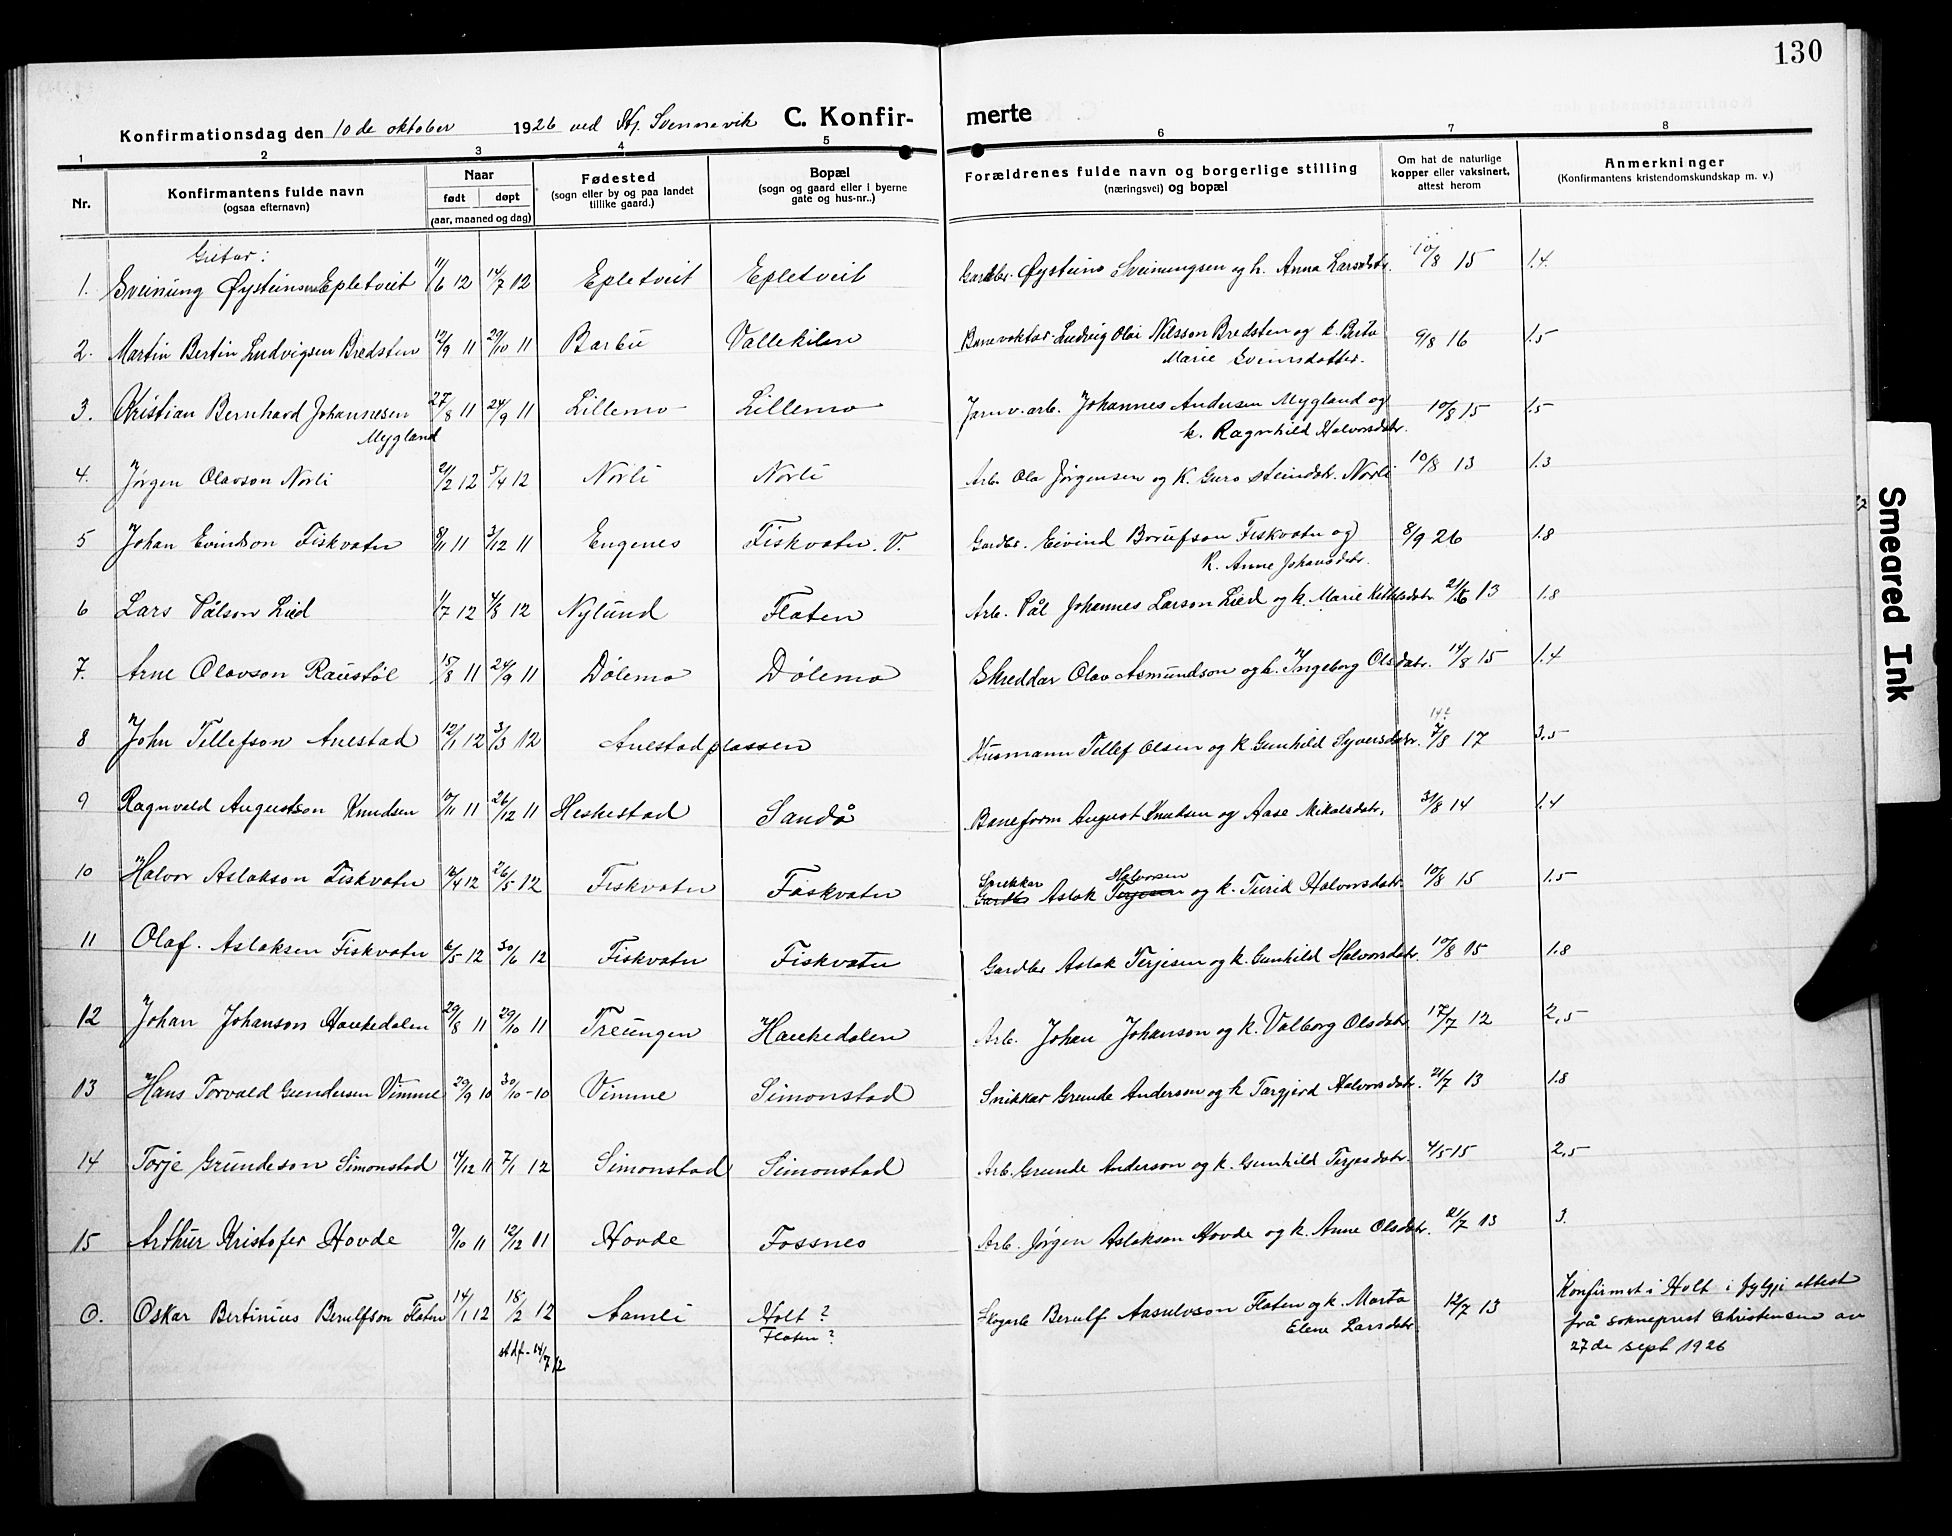 130
Konfirmationsdag den 10de oktober 1926 ved Hj. Svennevik C. Konfirmerte
1 2 3 4 5 6 7 8
Nr.
Konfirmantens fulde navn
(ogsaa efternavn)
Naar
født døpt
(aar, maaned og dag)
Fødested
(sogn eller by og paa landet
tillike gaard.)
Bopæl
(sogn og gaard eller i byerne
gate og hus-nr..)
Forældrenes fulde navn og borgerlige stilling
(næringsvei) og bopæl
Om hat de naturlige
kopper eller vaksinert,
attest herom
Anmerkninger
(Konfirmantens kristendomskundskap m. v.)
Gutar:
1. Sveinung Øysteinsen Epletveit 11/6 12 14/7 12 Epletveit Epletveit Gardbr. Øysteins Sveinungsen og h. Anna Larsdtr. 10/8 15 1.4
2. Martin Bertin Ludvigsen Bredsten 12/9 11 29/10 11 Barbu Vallekilen Banevoktar Ludvig Olai Nilsson Bredsten og k. Berta
Marie Sveinsdotter. 9/8 16 1.5
3. Kristian Bernhard Johannesen 27/8 11 24/9 11 Lillemo Lillemo Jarnv. arb. Johannes Andersen Mygland og
Mygland k. Ragnhild Halvorsdtr. 10/8 15 1.5
4. Jørgen Olavson Norli 21/2 12 5/4 12 Norli Norli Arb. Ola Jørgensen og K. Guro Steindtr. Norli 10/8 13 1.3
5 Johan Evindson Fiskvatn 8/11 11 3/12 11 Engenes Fiskvatn. V. Gardbr. Eivind Borufson Fiskvatn og
K. Anne Johansdtr. 8/9 26 1.8
6 Lars Pålson Lied 1/7 12 4/8 12 Nylund Flaten Arb. Pål Johannes Larson Lied og k. Marie Kittelsdtr 21/6 13 1.8
7. Arne Olavson Raustøl 15/8 11 24/9 11 Dølemo Dølemo Skreddar Olav Asmundson og h. Ingeborg Olsdtr. 14/8 15 1.4
8 John Tellefson Anestad 12/1 12 3/3 12 Anestadplassen Husmann Tellef Olsen og k Gunhild Syversdtr. 7/8 17 3,5
9 Ragnvald Augustson Knudsen 10/11 11 26/12 11 Heskestad Sandå Baneform August Knudsen og Aase Mikalsdtr. 31/8 14 1.4
10 Halvor Aslakson Fiskvatn 16/4 12 26/5 12 Fiskvatn Fiskvatn Snekkar Gardbr Aslak Halvorsen Terjesen og k. Turid Halvorsdatr. 10/8 15 1.5
11 Olaf. Aslaksen Fiskvatn 6/5 12 30/6 12 Fiskvatn Fiskvatn Gardbr Aslak Terjesen og k. Gunhild Halvorsdtr. 10/8 15 1.8
12 Johan Johanson Haukedalen 29/8 11 29/10 11 Treungen Haukedalen Arb. Johan Johanson og k. Valborg Olsdtr. 17/7 12 2,5
13 Hans Torvald Gundersen Vimme 29/9 10 30/10-10 Vimme Simonstad Snikkar Grunde Anderson og k Targjerd Halvorsdtr. 21/7 13 1.8
14 Torje Grundeson Simonstad 14/12 11 7/1 12 Simonstad Simonstad Arb. Grunde Anderson og k. Gunhild Terjesdatr. 4/5-15 2,5
15 Arthur Kristofer Hovde 9/10 11 12/12 11 Hovde Fossnes Arb. Jørgen Aslakson Hovde og k. Anne Olsdtr. 21/7 13 3.
0. Oskar Bertinius Berulfson Flaten 14/1 12 18/2 12 Aamli Holt? Skogarb Berulf Aasulvson Flaten og k. Marta 12/7 13 Konfirmert i Holt i fylgje attest
Flaten? Elene Larsdtr. frå sokneprest Christensen av
st df. 14/7 12 27de sept 1926
Smeared Ink